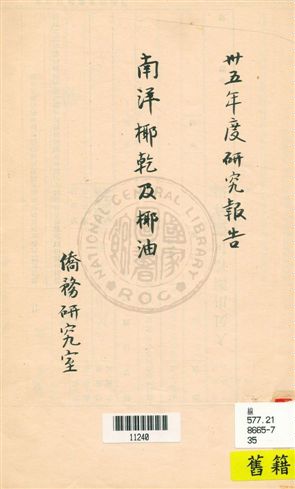 卅五年度研究報告
南洋椰乾及椰油
僑務研究室
NATIONAL CENTRAL LIBRARY
國家圖書館
ROC
11240
線
577.21
8665-7
35
舊籍